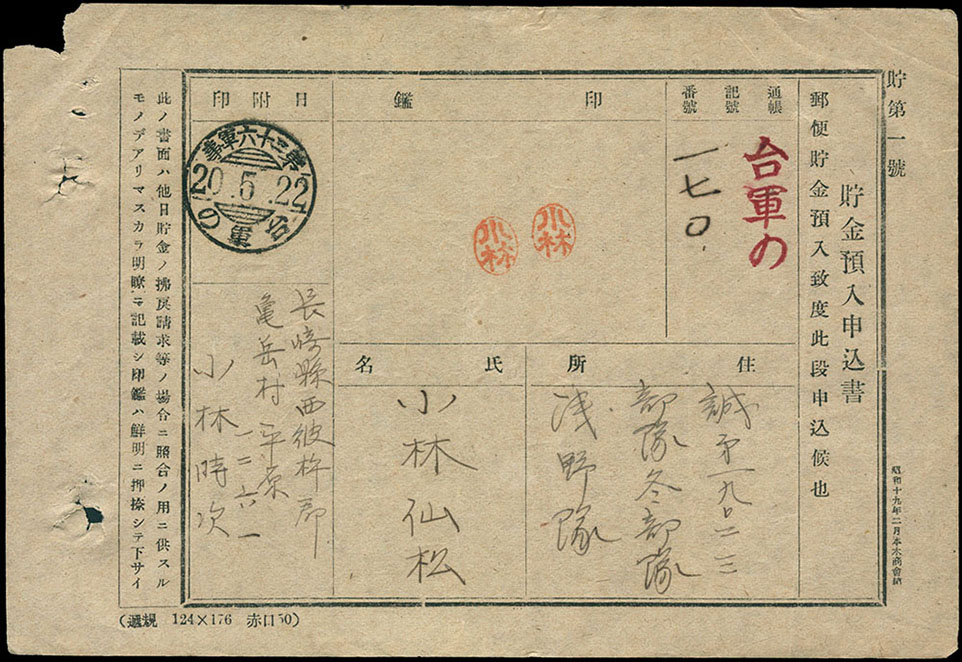 貯第一號
貯金預入申込書
郵便貯金預入致度此段申込候也
通帳
記號
番號
台軍の
一七〇.
印鑑
小林
小林
日附印
第三十六軍事
20.5.22
台軍の
住所
誠第一九〇二二
部隊冬部隊
浅野隊
氏名
小林仙松
長崎縣西彼杵郡
亀岳村平原
一二六一
小林時次
此ノ書面ハ他日貯金ノ拂戻請求等ノ場合ニ照合ノ用ニ供スル
モノデアリマスカラ明瞭ニ記載シ印鑑ハ鮮明ニ押捺シテ下サイ
昭和十九年二月本木商會納
(逓規 124×176 赤口50)